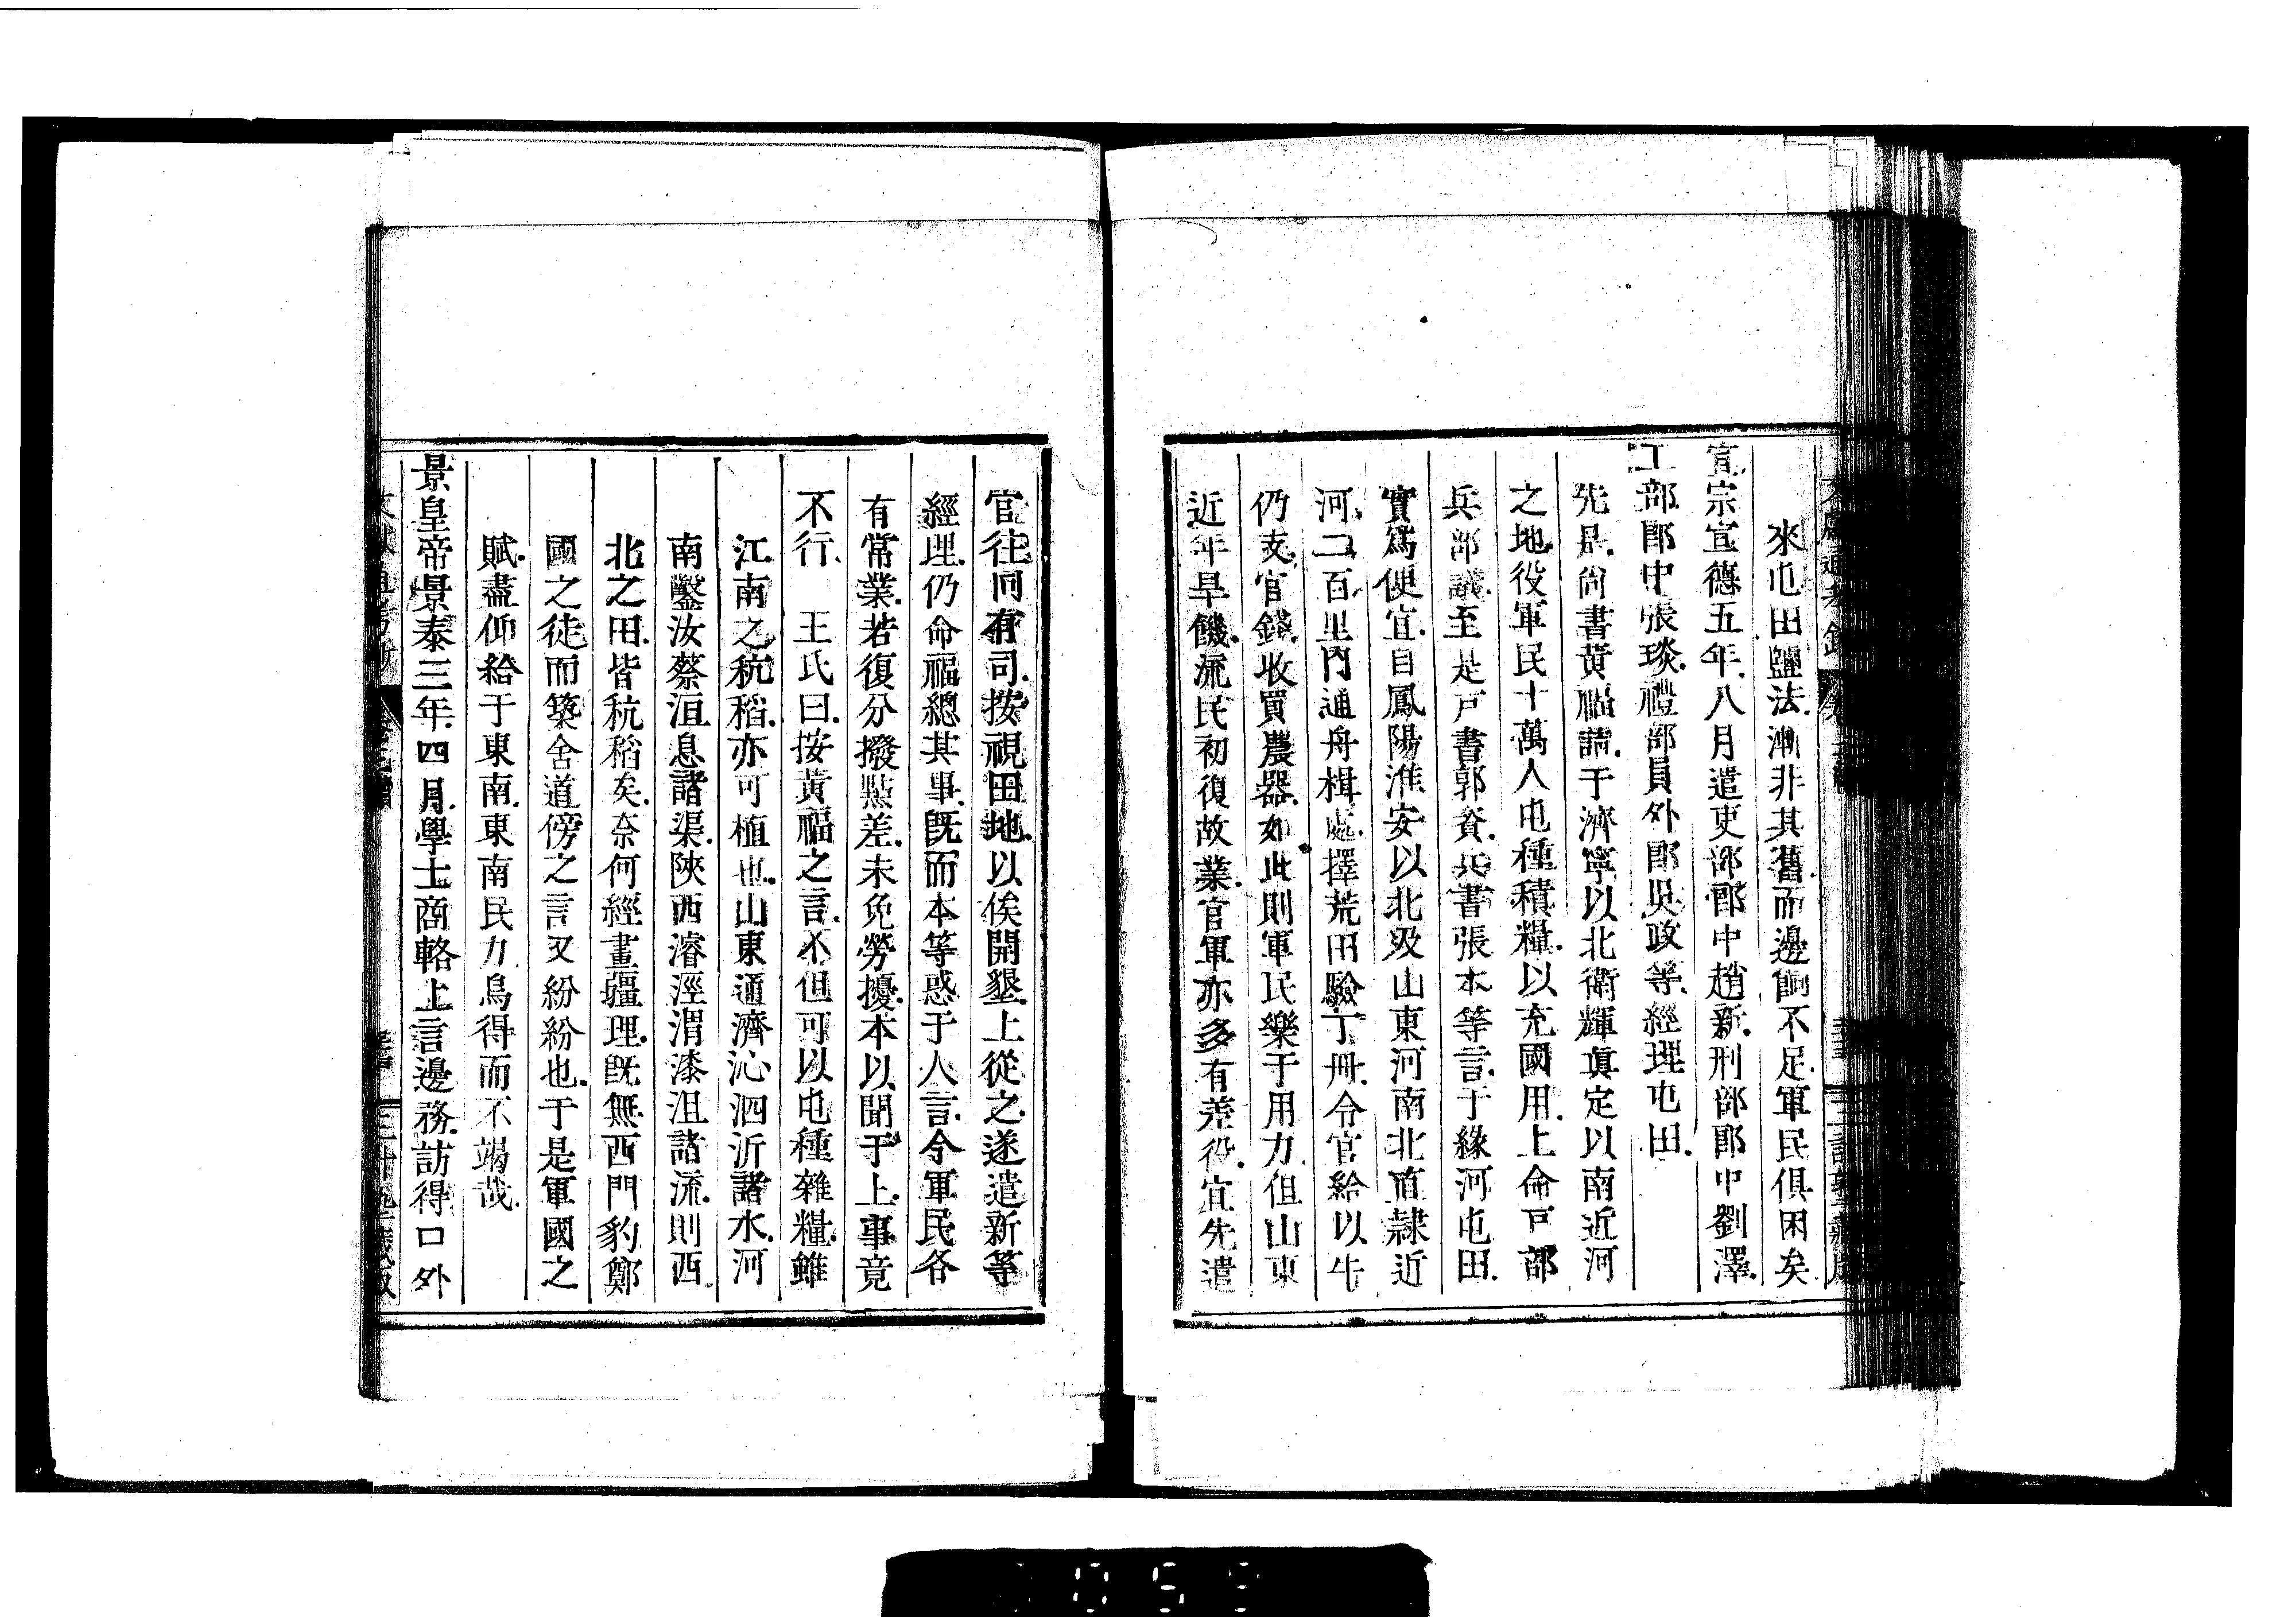 來屯田鹽法漸非其舊而邊餉不足軍民俱困矣
宣宗宣德五年八月遣吏部郎中趙新刑部郎中劉澤
工部郎中張琰禮部員外郎吳政等經理屯田
先是尚書黃福請于濟寧以北衛輝真定以南近河
之地役軍民十萬人屯種積糧以充國用上命戶部
兵部議至是戶書郭資兵書張本等言于緣河屯田
實爲便宜自鳳陽淮安以北及山東河南北直隸近
河二百里內通舟楫處擇荒田驗丁冊令官給以牛
仍支官錢收買農器如此則軍民樂于用力但山東
近年旱饑流民初復故業官軍亦多有差役宜先遣
官往同有司按視田地以俟開墾上從之遂遣新等
經理仍命福總其事旣而本等惑于人言令軍民各
有常業若復分撥點差未免勞擾本以聞于上事竟
不行 王氏曰按黃福之言不但可以屯種雜糧雖
江南之秔稻亦可植也山東通濟沁泗沂諸水河
南鑿汝蔡洹息諸渠陝西濬涇渭漆沮諸流則西
北之田皆秔稻矣奈何經畫疆理旣無西門豹鄭
國之徒而築舍道傍之言又紛紛也于是軍國之
賦盡仰給于東南東南民力烏得而不竭哉
景皇帝景泰三年四月學士商輅上言邊務訪得口外